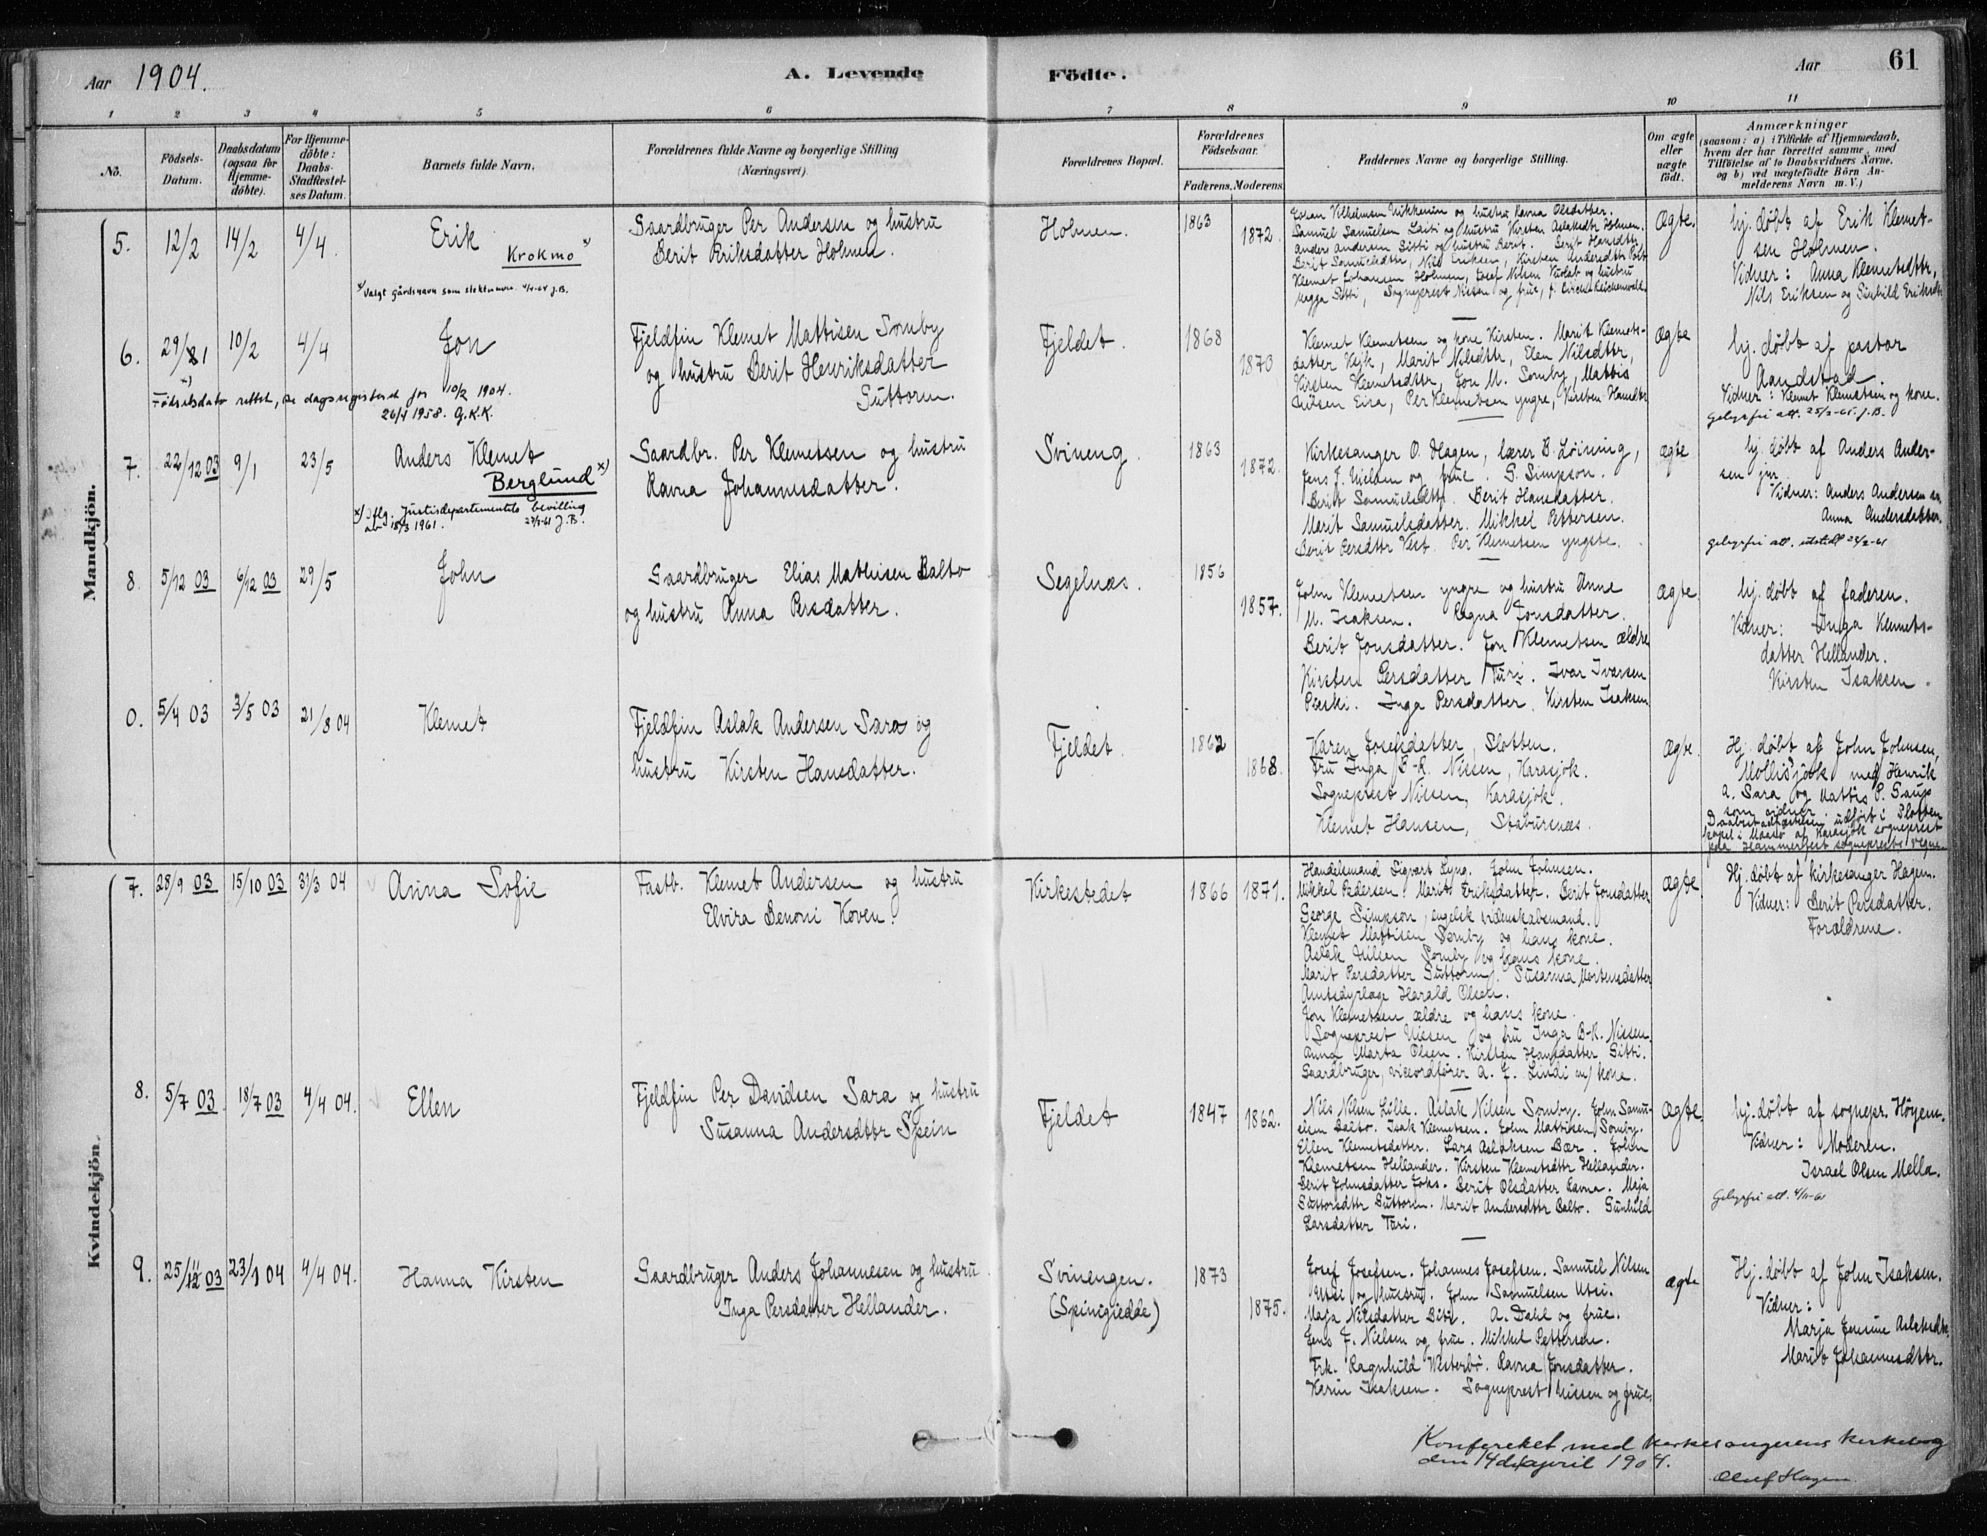 Aar 1904. A. Levende Födte. Aar 61
1 2 3 4 5 6 7 8 9 10 11
No.
Födsels-Datum.
Daabsdatum (ogsaa for Hjemme-döbte).
For Hjemme-döbte: Daabs-Stadfæstel-ses Datum.
Barnets fulde Navn.
Forældrenes fulde Navne og borgerlige Stilling (Næringsvei).
Forældrenes Bopæl.
Forældrenes Födselsaar.
Faderens. Moderens.
Faddernes Navne og borgerlige Stilling.
Om ægte eller uægte födt.
Anmærkninger
(saasom: a) i Tilfælde af Hjemmedaab, hvem der har forrettet samme, med Tilföielse af to Daabsvidners Navne, og b) ved uægtefödte Börn An-melderens Navn m. V.)
Mandkjön.
5. 12/2 14/2 4/4.
Erik
Krokmo x)
x) Valgt gårdsnavn som slektsnavn. 4/4-64 J.B.
Gaardbruger Per Andersen og hustru
Berit Eriksdatter Holmen.
Holmen. 1863 1872.
Samuel Samuelsen Laiti og hustru Kirsten Aslaksdtr Holmen.
Anders Andersen Sitti og hustru Berit. Berit Hansdttr
Berit Samuelsdttr, Nils Eriksen, Kirsten Andersdttr
Klemet Johansen Holmen, Josef Nilsen og hustru
Magga Sitti, Sogneprest Nissen og frue,
Ægte.
hj. døbt af Erik Klemet-
sen Holmen.
Vidner: Anna Klemetsdttr,
Nils Eriksen og Eriksdt
6. 29/1 10/2 4/4
Jon
x) Fødselsdato rettet, se dagsregisteret for 10/2 1904.
26/4 1958. G.K.K.
Fjeldfin Klemet Mattisen Somby
og hustru Berit Henriksdatter
Guttorm.
Fjeldet. 1868 1870
Klemet Klemetsen og kone Kirsten. Marit Klemets-
datter, Marit Nilsdttr, Elen Nilsdttr,
Kirsten Klemetsdttr, Jon M. Somby, Mattis
Nilsen Eira, Per Klemetsen yngre, Kirsten Hansdttr
Ægte
hj. døbt af pastor
Aandstad.
Vidner: Klemet Klemetsen og kone.
Gebyrfri att. 25/2-65. J.B.
7. 22/12 03 9/1 23/5
Anders Klemet
Berglund x)
x) Iflg. Justisdepartementets bevilling
av 18/3 1961. J.B.
Gaardbr. Per Klemetsen og hustru
Ravna Johannesdatter.
Svineng. 1863 1872.
Kirkesanger O. Hagen, lærer B. Løining,
Jens J. Nielsen og frue. G. Simpson.
Berit Samuelsdttr. Berit Hansdatter.
Marit Samuelsdatter. Mikkel Pettersen.
Berit Persdttr Vest. Per Klemetsen yngste.
ægte
hj. døbt af Anders Ander-
sen jun.
Vidner: Anders Andersen sr.
Anna Andersdatter.
gebyrfri att. utstedt 24/2-61
8. 5/12 03 6/12 03 29/5
John
Gaardbruger Elias Mathisen Balto
og hustru Anna Persdatter.
Segelnæs. 1856 1857.
John Klemetsen yngre og hustru Anne
M. Isaksen. Ragna Jonsdatter.
Berit Jonsdatter. Jon Klemetsen ældre
Kirsten Persdatter Turi. Ivar Ivarsen
Pieski. Inga Persdatter. Kirsten Isaksen
ægte
hj. døbt af faderen.
Vidner: Inga Klemets-
datter Hellander.
Kirsten Isaksen.
0. 5/4 03 3/5 03 21/8 04
Klemet
Fjeldfin Aslak Andersen Sara og
hustru Kirsten Hansdatter.
Fjeldet. 1862 1868.
Karen Josefsdatter, Slotten.
Fru Inga B-R. Nissen, Karasjok.
Sogneprest Nissen, Karasjok.
Klemet Hansen, Staburesnæs.
ægte.
Hj. døbt af John Johnsen,
Mollisjok med Henrik
A. Sara og Mattis P. Gaup
som vidner.
Daabsstadfæstelsen udført i Slotten
kapel i Maasø af Karasjok sogneprest
paa Hammerfest sogneprests vegne.
Kvindekjön.
7. 28/9 03 15/10 03 31/3 04
Anna Sofie
Fastb. Klemet Andersen og hustru
Elvira Benoni Koven.
Kirkestedet 1866 1871.
Handelsmand Sigvart Lyng. John Johnsen.
Mikkel Pedersen. Marit Eriksdatter. Berit Jonsdatter
George Simpson, engelsk videnskabsmand.
Klemet Mattisen Somby og hans kone.
Aslak Nilsen Somby og hans kone.
Marit Persdatter Guttorm. Susanna Mortensdatter
Amtsdyrlæge Harald Olsen.
Jon Klemetsen ældre og hans kone.
Sogneprest Nissen og fru Inga B-R. Nissen.
Anna Marta Olsen. Kirsten Hansdatter Sitti.
Gaardbruger, viceordfører A. J. Lindi m/ kone.
ægte
Hj. døbt af kirkesanger Hagen.
Vidner: Berit Persdatter.
Forældrene.
8. 5/7 03. 18/7 03 4/4 04.
Ellen
Fjeldfin Per Davidsen Sara og hustru
Susanna Andersdttr Spein
Fjeldet 1847 1862.
Nils Nilsen Lille. Aslak Nilsen Somby. John Samu-
elsen Balto. Isak Klemetsen. John Mattisen Somby.
Ellen Klemetsdatter. Lars Aslaksen Bær. John
Klemetsen Hellander. Kirsten Klemetsdttr Hellander.
Berit Johnsdatter Joks. Berit Olsdatter Ravna. Maja
Guttorsdttr Guttorm. Marit Andersdttr Balto. Gunhild
Larsdatter Turi.
Ægte.
hj. døbt af sognepr. Høyem.
Vidner: Moderen.
Israel Olsen Mella.
Gebyrfri att. 4/11-61
9. 25/11 03 23/1 04 4/4 04.
Hanna Kirsten
Gaardbruger Anders Johannesen og hustru
Inga Persdatter Hellander.
Svinengen.
(Spinigiedde) 1873 1875.
Josef Josefsen. Johannes Josefsen. Samuel Nilsen
Utsi og hustru. John Samuelsen Utsi.
Maja Nilsdatter Biti. A. Dahl og frue.
Jens J. Nielsen og frue. Mikkel Pettersen.
Frk. Ragnhild Westerbø. Ravna Jonsdatter.
Karin Isaksen. Sogneprest Nissen og frue.
ægte
Hj. døbt af John Isaksen.
Vidner:
Marja Jensine Aslaksdtr,
Marit Johannesdttr.
Konfereret med kirkesangerens kirkebog
den 14de april 1904.
Oluf Hagen